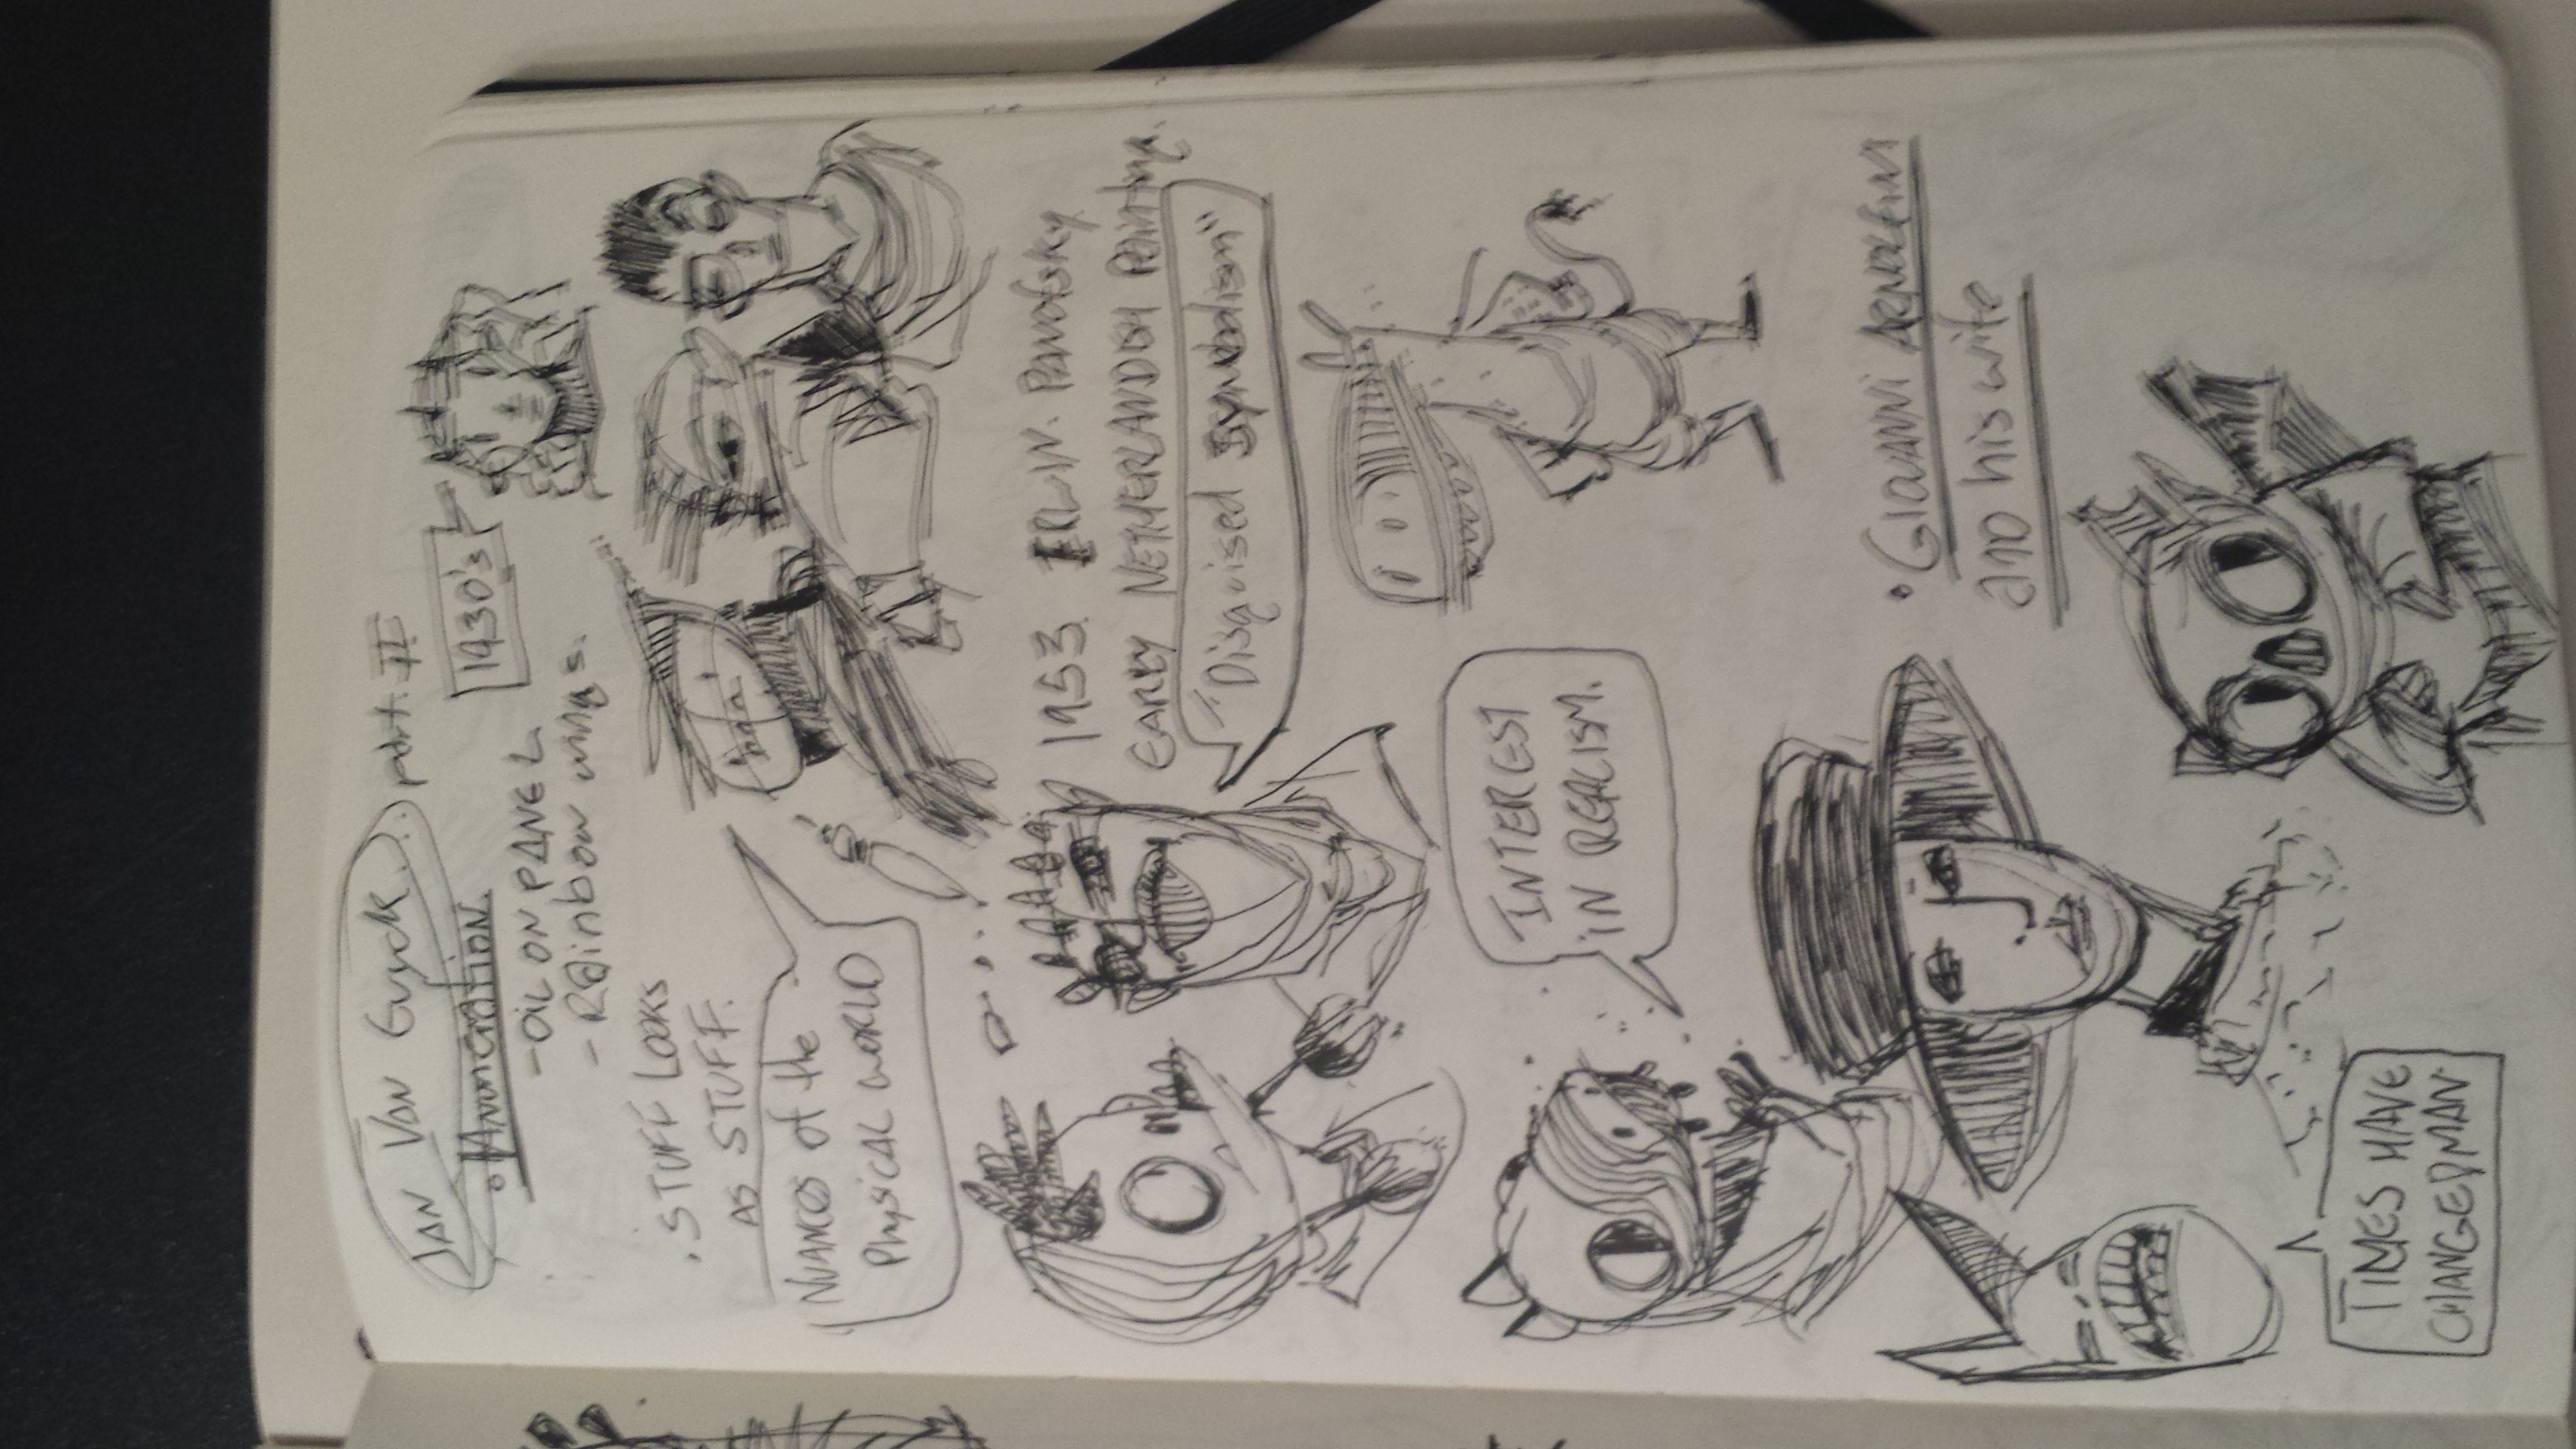 JAN VAN Guyck... part. II
• Anuncration.
1430's
- OIL ON PANEL
- Rainbow wings.
. STUFF LOOKS
AS STUFF.
NUANCES of the
Physical WORLD
haha
1953. IRWW. Panofsky
EARLY NETHERLANDISH PAINTING.
"Disguised Symbolism"
INTEREST
IN REALISM.
• GIOVANNI ARNOLFINI
AND his wife
TIMES HAVE
CHANGED MAN